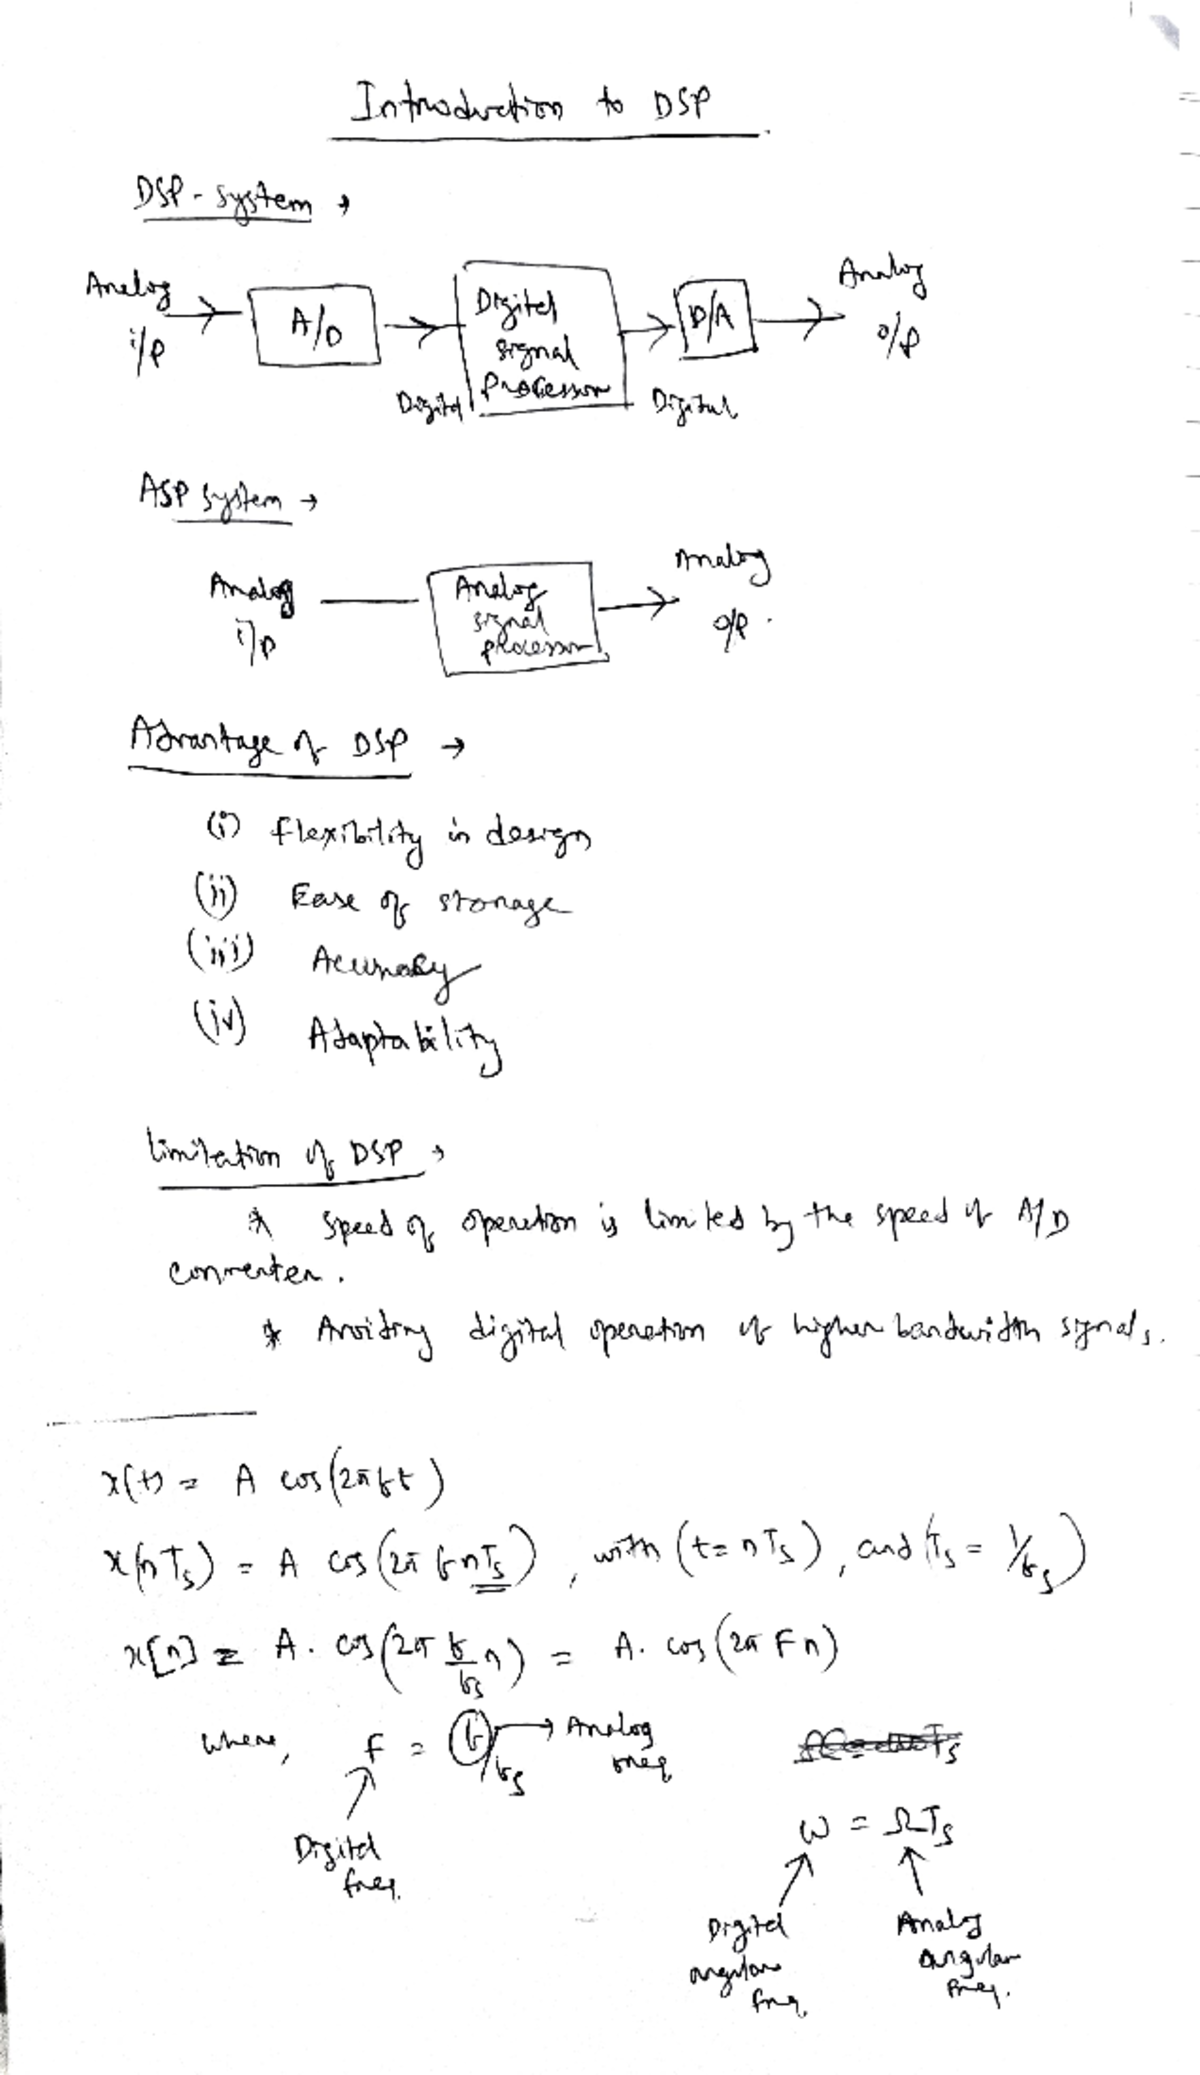 Introduction to DSP
DSP - system →
Analog i/p → A/D → Digital → Digital signal Processor → Digital → D/A → Analog o/p
ASP system →
Analog i/p — Analog signal processor → Analog o/p.
Advantage of DSP →
(i) flexibility in design
(ii) Ease of storage
(iii) Accuracy
(iv) Adaptability
limitation of DSP →
* Speed of operation is limited by the speed of A/D
converter.
* Avoiding digital operation of higher bandwidth signals.
x(t) = A cos(2πft)
x(nTs) = A cos(2π f nTs), with (t = nTs), and (Ts = 1/fs)
x[n] = A. cos(2π f/fs n) = A. cos(2π F n)
where, F = f/fs → Analog freq.
Digital freq.
ω = ΩTs
Digital angular freq.
Analog angular freq.